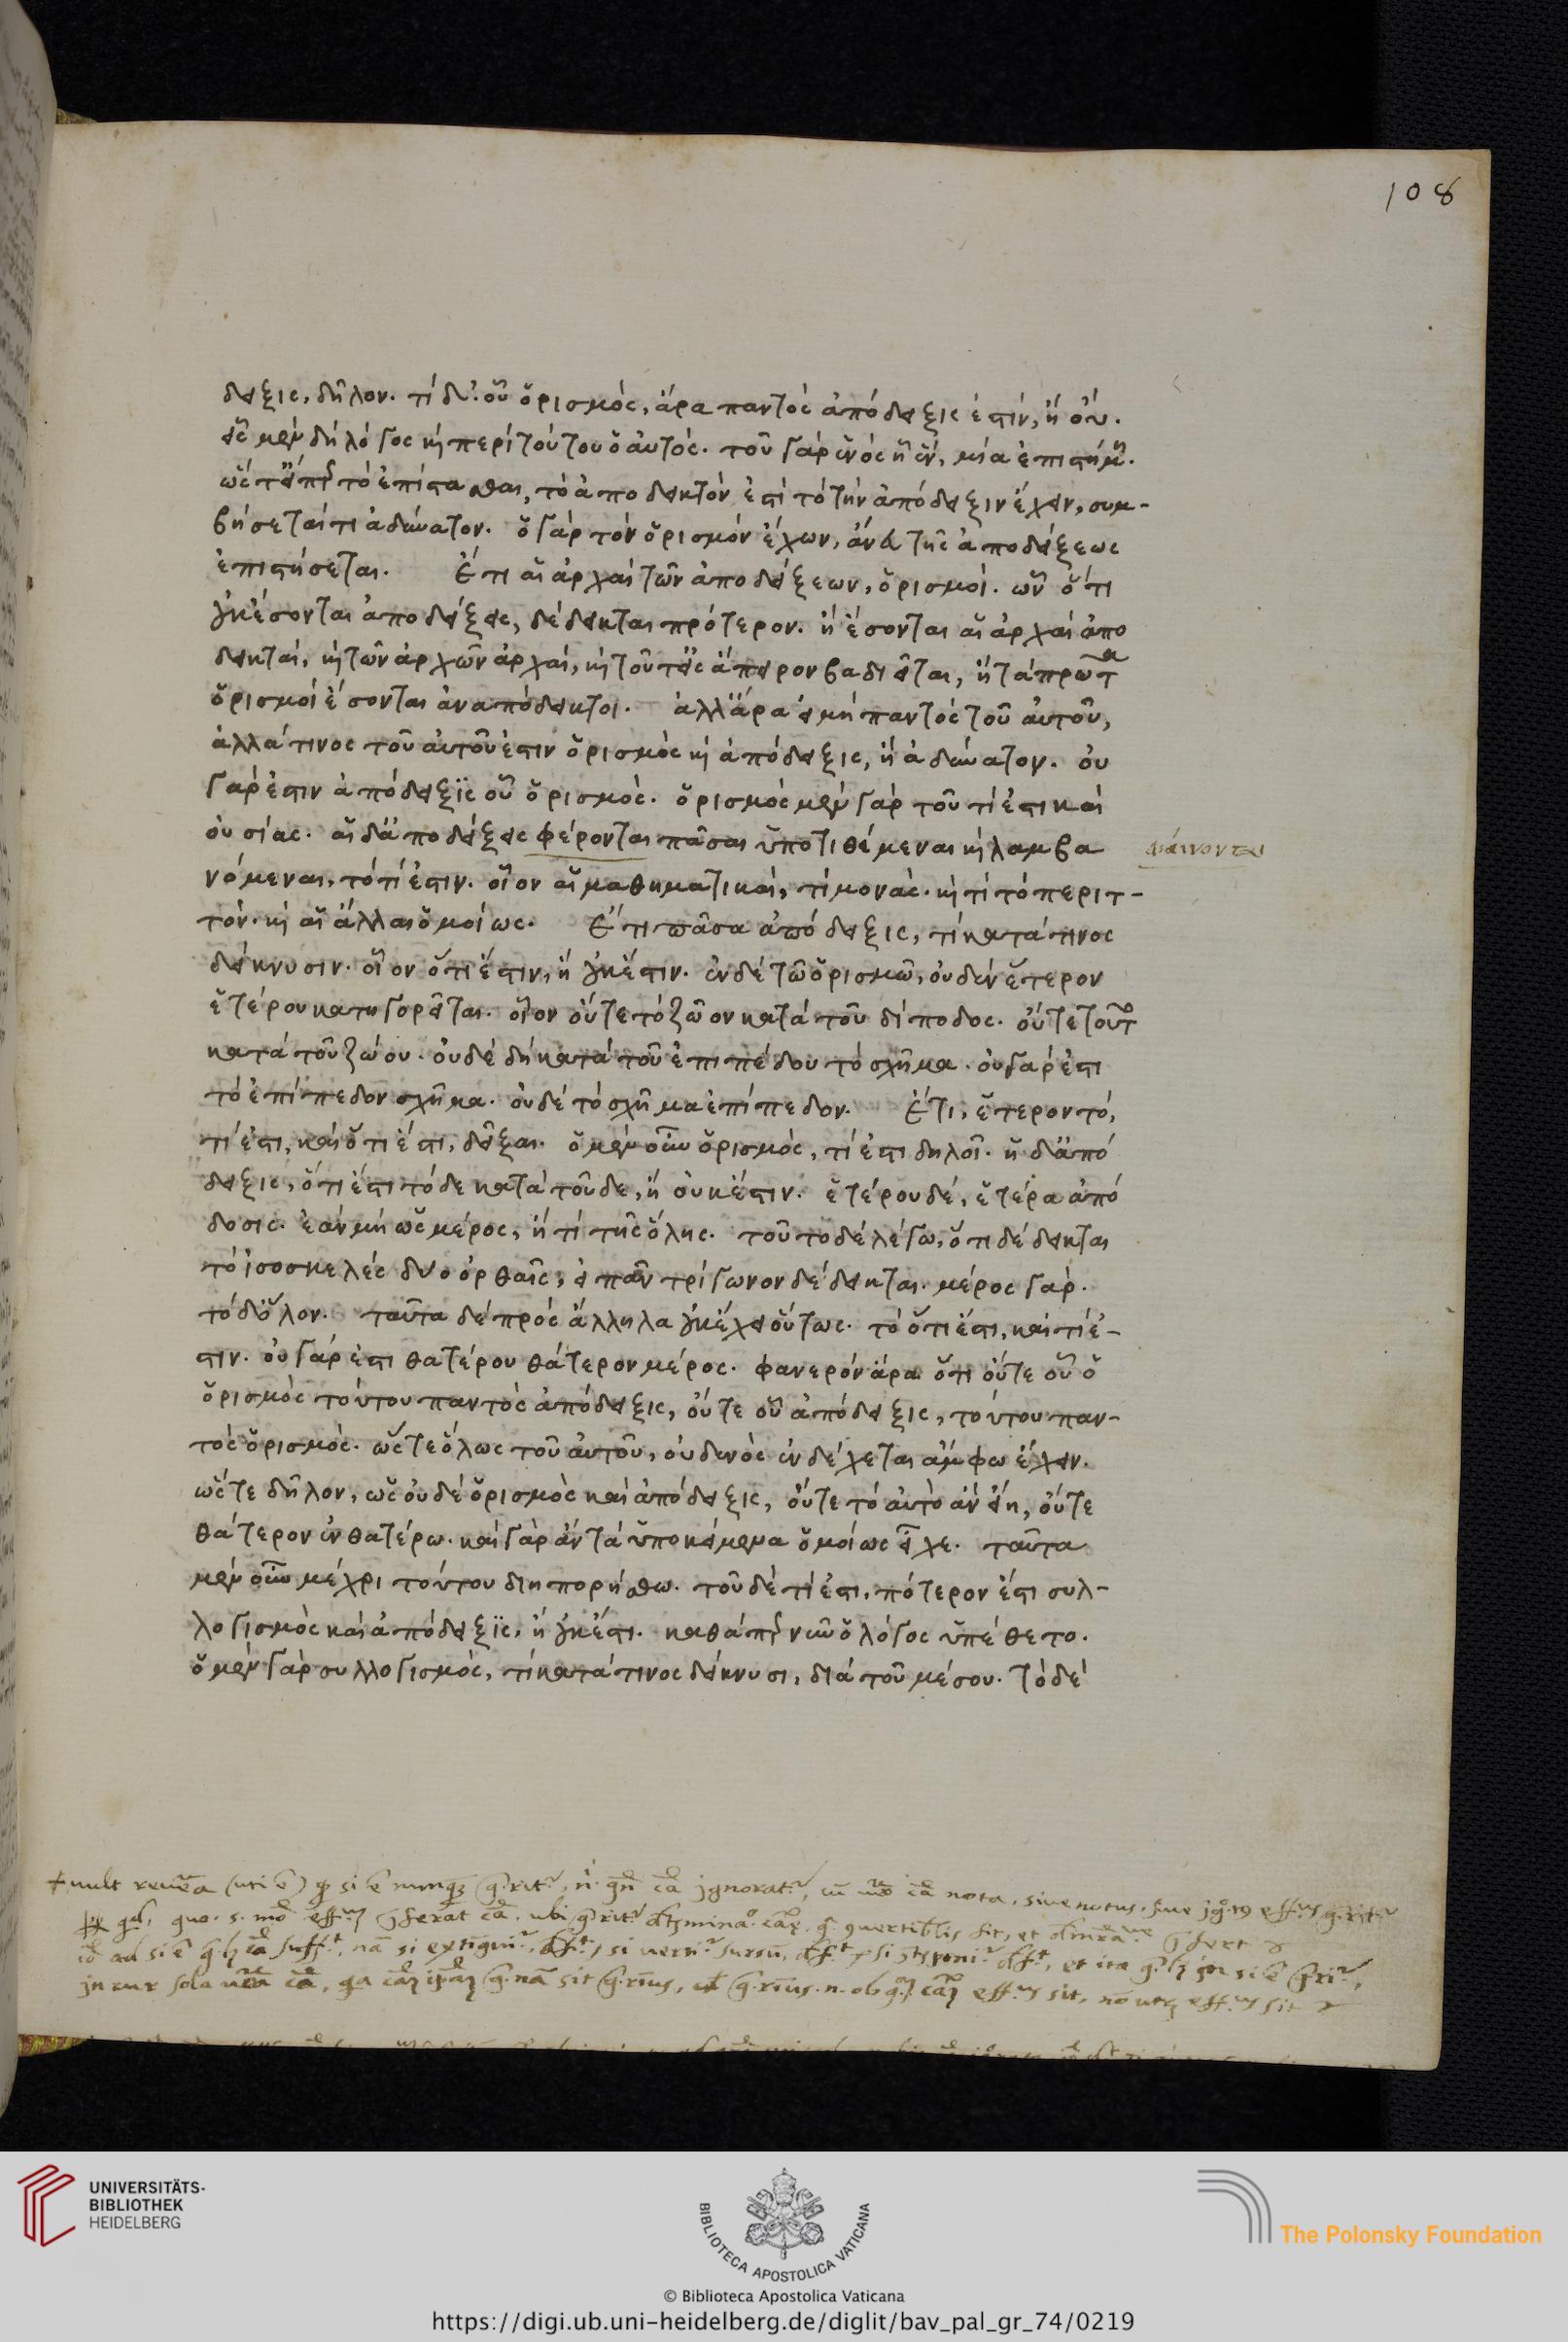 108
δειξις, δῆλον. τί δ'. οὗ ὁρισμὸς, ἆρα παντὸς ἀπόδειξις ἐστὶν, ἢ οὔ.
εἷς μὲν δὴ λόγος καὶ περὶ τούτου ὁ αὐτός. τοῦ γὰρ ἑνὸς ᾗ ἓν, μία ἐπιστήμη.
ὥστ' εἴπερ τὸ ἐπίστασθαι, τὸ ἀποδεικτὸν ἐστὶ τὸ τὴν ἀπόδειξιν ἔχειν, συμ-
βήσεταί τι ἀδύνατον. ὁ γὰρ τὸν ὁρισμὸν ἔχων, ἄνευ τῆς ἀποδείξεως
ἐπιστήσεται. Ἔτι αἱ ἀρχαὶ τῶν ἀποδείξεων, ὁρισμοί. ὧν ὅτι
οὐκ ἔσονται ἀποδείξεις, δέδεικται πρότερον. ἢ ἔσονται αἱ ἀρχαὶ ἀπο
δεικταί, καὶ τῶν ἀρχῶν ἀρχαί, καὶ τοῦτ' εἰς ἄπειρον βαδιεῖται, ἢ τὰ πρῶτα
ὁρισμοὶ ἔσονται ἀναπόδεικτοι. ἀλλ' ἆρα εἰ μὴ παντὸς τοῦ αὐτοῦ,
ἀλλὰ τινὸς τοῦ αὐτοῦ ἔστιν ὁρισμὸς καὶ ἀπόδειξις, ἢ ἀδύνατον. οὐ
γάρ ἐστιν ἀπόδειξις οὗ ὁρισμός. ὁρισμὸς μὲν γὰρ τοῦ τί ἐστι καὶ
οὐσίας. αἱ δ' ἀποδείξεις φέρονται πᾶσαι ὑποτιθέμεναι καὶ λαμβα
φαίνονται
νόμεναι, τὸ τί ἐστιν. οἷον αἱ μαθηματικαί, τί μονάς. καὶ τί τὸ περιτ-
τόν. καὶ αἱ ἄλλαι ὁμοίως. Ἔτι πᾶσα ἀπόδειξις, τὶ κατά τινος
δείκνυσιν. οἷον ὅτι ἔστιν, ἢ οὐκ ἔστιν. ἐν δὲ τῷ ὁρισμῶ, οὐδὲν ἕτερον
ἑτέρου κατηγορεῖται. οἷον οὔτε τὸ ζῶον κατὰ τοῦ δίποδος. οὔτε τοῦτο
κατὰ τοῦ ζώου. οὐδὲ δὴ κατὰ τοῦ ἐπιπέδου τὸ σχῆμα. οὐ γάρ ἐστι
τὸ ἐπίπεδον σχῆμα. οὐδὲ τὸ σχῆμα ἐπίπεδον. Ἔτι, ἕτερον τό,
τί ἐστι, καὶ ὅτι ἔστι, δεῖξαι. ὁ μὲν οὖν ὁρισμὸς, τί ἐστι δηλοῖ. ἡ δ' ἀπό
δειξις, ὅτι ἔστι τόδε κατὰ τοῦδε, ἢ οὐκ ἔστιν. ἑτέρου δέ, ἑτέρα ἀπό
δοσις. ἐὰν μὴ ὡς μέρος, ἤ τι τῆς ὅλης. τοῦτο δὲ λέγω, ὅτι δέδεικται
τὸ ἰσοσκελὲς δύο ὀρθαῖς, εἰ πᾶν τρίγωνον δέδεικται. μέρος γάρ.
τὸ δ' ὅλον. ταῦτα δὲ πρὸς ἄλληλα οὐκ ἔχει οὕτως. τὸ ὅτι ἔστι, καὶ τί ἐ-
στιν. οὐ γάρ ἐστι θατέρου θάτερον μέρος. φανερὸν ἄρα ὅτι οὔτε οὗ ὁ
ὁρισμὸς τούτου παντὸς ἀπόδειξις, οὔτε οὗ ἀπόδειξις, τούτου παν-
τὸς ὁρισμός. ὥστε ὅλως τοῦ αὐτοῦ, οὐδενὸς ἐνδέχεται ἄμφω ἔχειν.
ὥστε δῆλον, ὡς οὐδὲ ὁρισμὸς καὶ ἀπόδειξις, οὔτε τὸ αὐτὸ ἂν εἴη, οὔτε
θάτερον ἐν θατέρω. καὶ γὰρ ἂν τὰ ὑποκείμενα ὁμοίως εἶχε. ταῦτα
μὲν οὖν μέχρι τούτου διηπορήσθω. τοῦ δὲ τί ἐστι, πότερον ἔστι συλ-
λογισμὸς καὶ ἀπόδειξις, ἢ οὐκ ἔστι. καθάπερ νῦν ὁ λόγος ὑπέθετο.
ὁ μὲν γὰρ συλλογισμὸς, τὶ κατά τινος δείκνυσι, διὰ τοῦ μέσου. τὸ δὲ
UNIVERSITÄTS-
BIBLIOTHEK
HEIDELBERG
BIBLIOTECA APOSTOLICA VATICANA
The Polonsky Foundation
© Biblioteca Apostolica Vaticana
https://digi.ub.uni-heidelberg.de/diglit/bav_pal_gr_74/0219